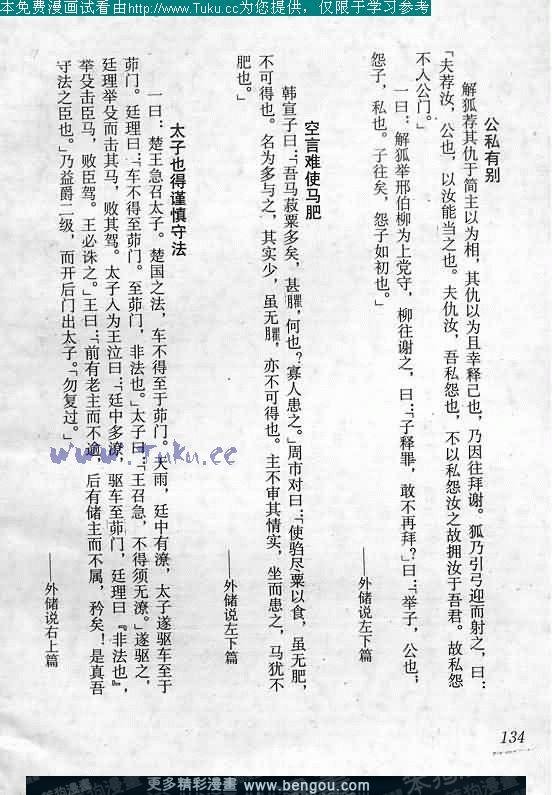 本免费漫画试看由http://www.Tuku.cc为您提供，仅限于学习参考
公私有别
解狐荐其仇于简主以为相，其仇以为且幸释己也，乃因往拜谢。狐乃引弓迎而射之，曰：
「夫荐汝，公也，以汝能当之也。夫仇汝，吾私怨也，不以私怨汝之故拥汝于吾君。故私怨
不入公门。」
一曰：解狐举邢伯柳为上党守，柳往谢之，曰：「子释罪，敢不再拜？」曰：「举子，公也；
怨子，私也。子往矣，怨子如初也。」
——外储说左下篇
空言难使马肥
韩宣子曰：「吾马菽粟多矣，甚臞，何也？寡人患之。」周市对曰：「使驺尽粟以食，虽无肥，
不可得也。名为多与之，其实少，虽无臞，亦不可得也。主不审其情实，坐而患之，马犹不
肥也。」
——外储说左下篇
太子也得谨慎守法
一曰：楚王急召太子。楚国之法，车不得至于茆门。天雨，廷中有潦，太子遂驱车至于
茆门。廷理曰：「车不得至茆门。至茆门，非法也。」太子曰：「王召急，不得须无潦。」遂驱之，
廷理举殳而击其马，败其驾。太子入为王泣曰：「廷中多潦，驱车至茆门，廷理曰『非法也』，
举殳击臣马，败臣驾。王必诛之。」王曰：「前有老主而不逾，后有储主而不属，矜矣！是真吾
守法之臣也。」乃益爵二级，而开后门出太子。「勿复过。」
——外储说右上篇
www.Tuku.cc
134
更多精彩漫畫 www.bengou.com